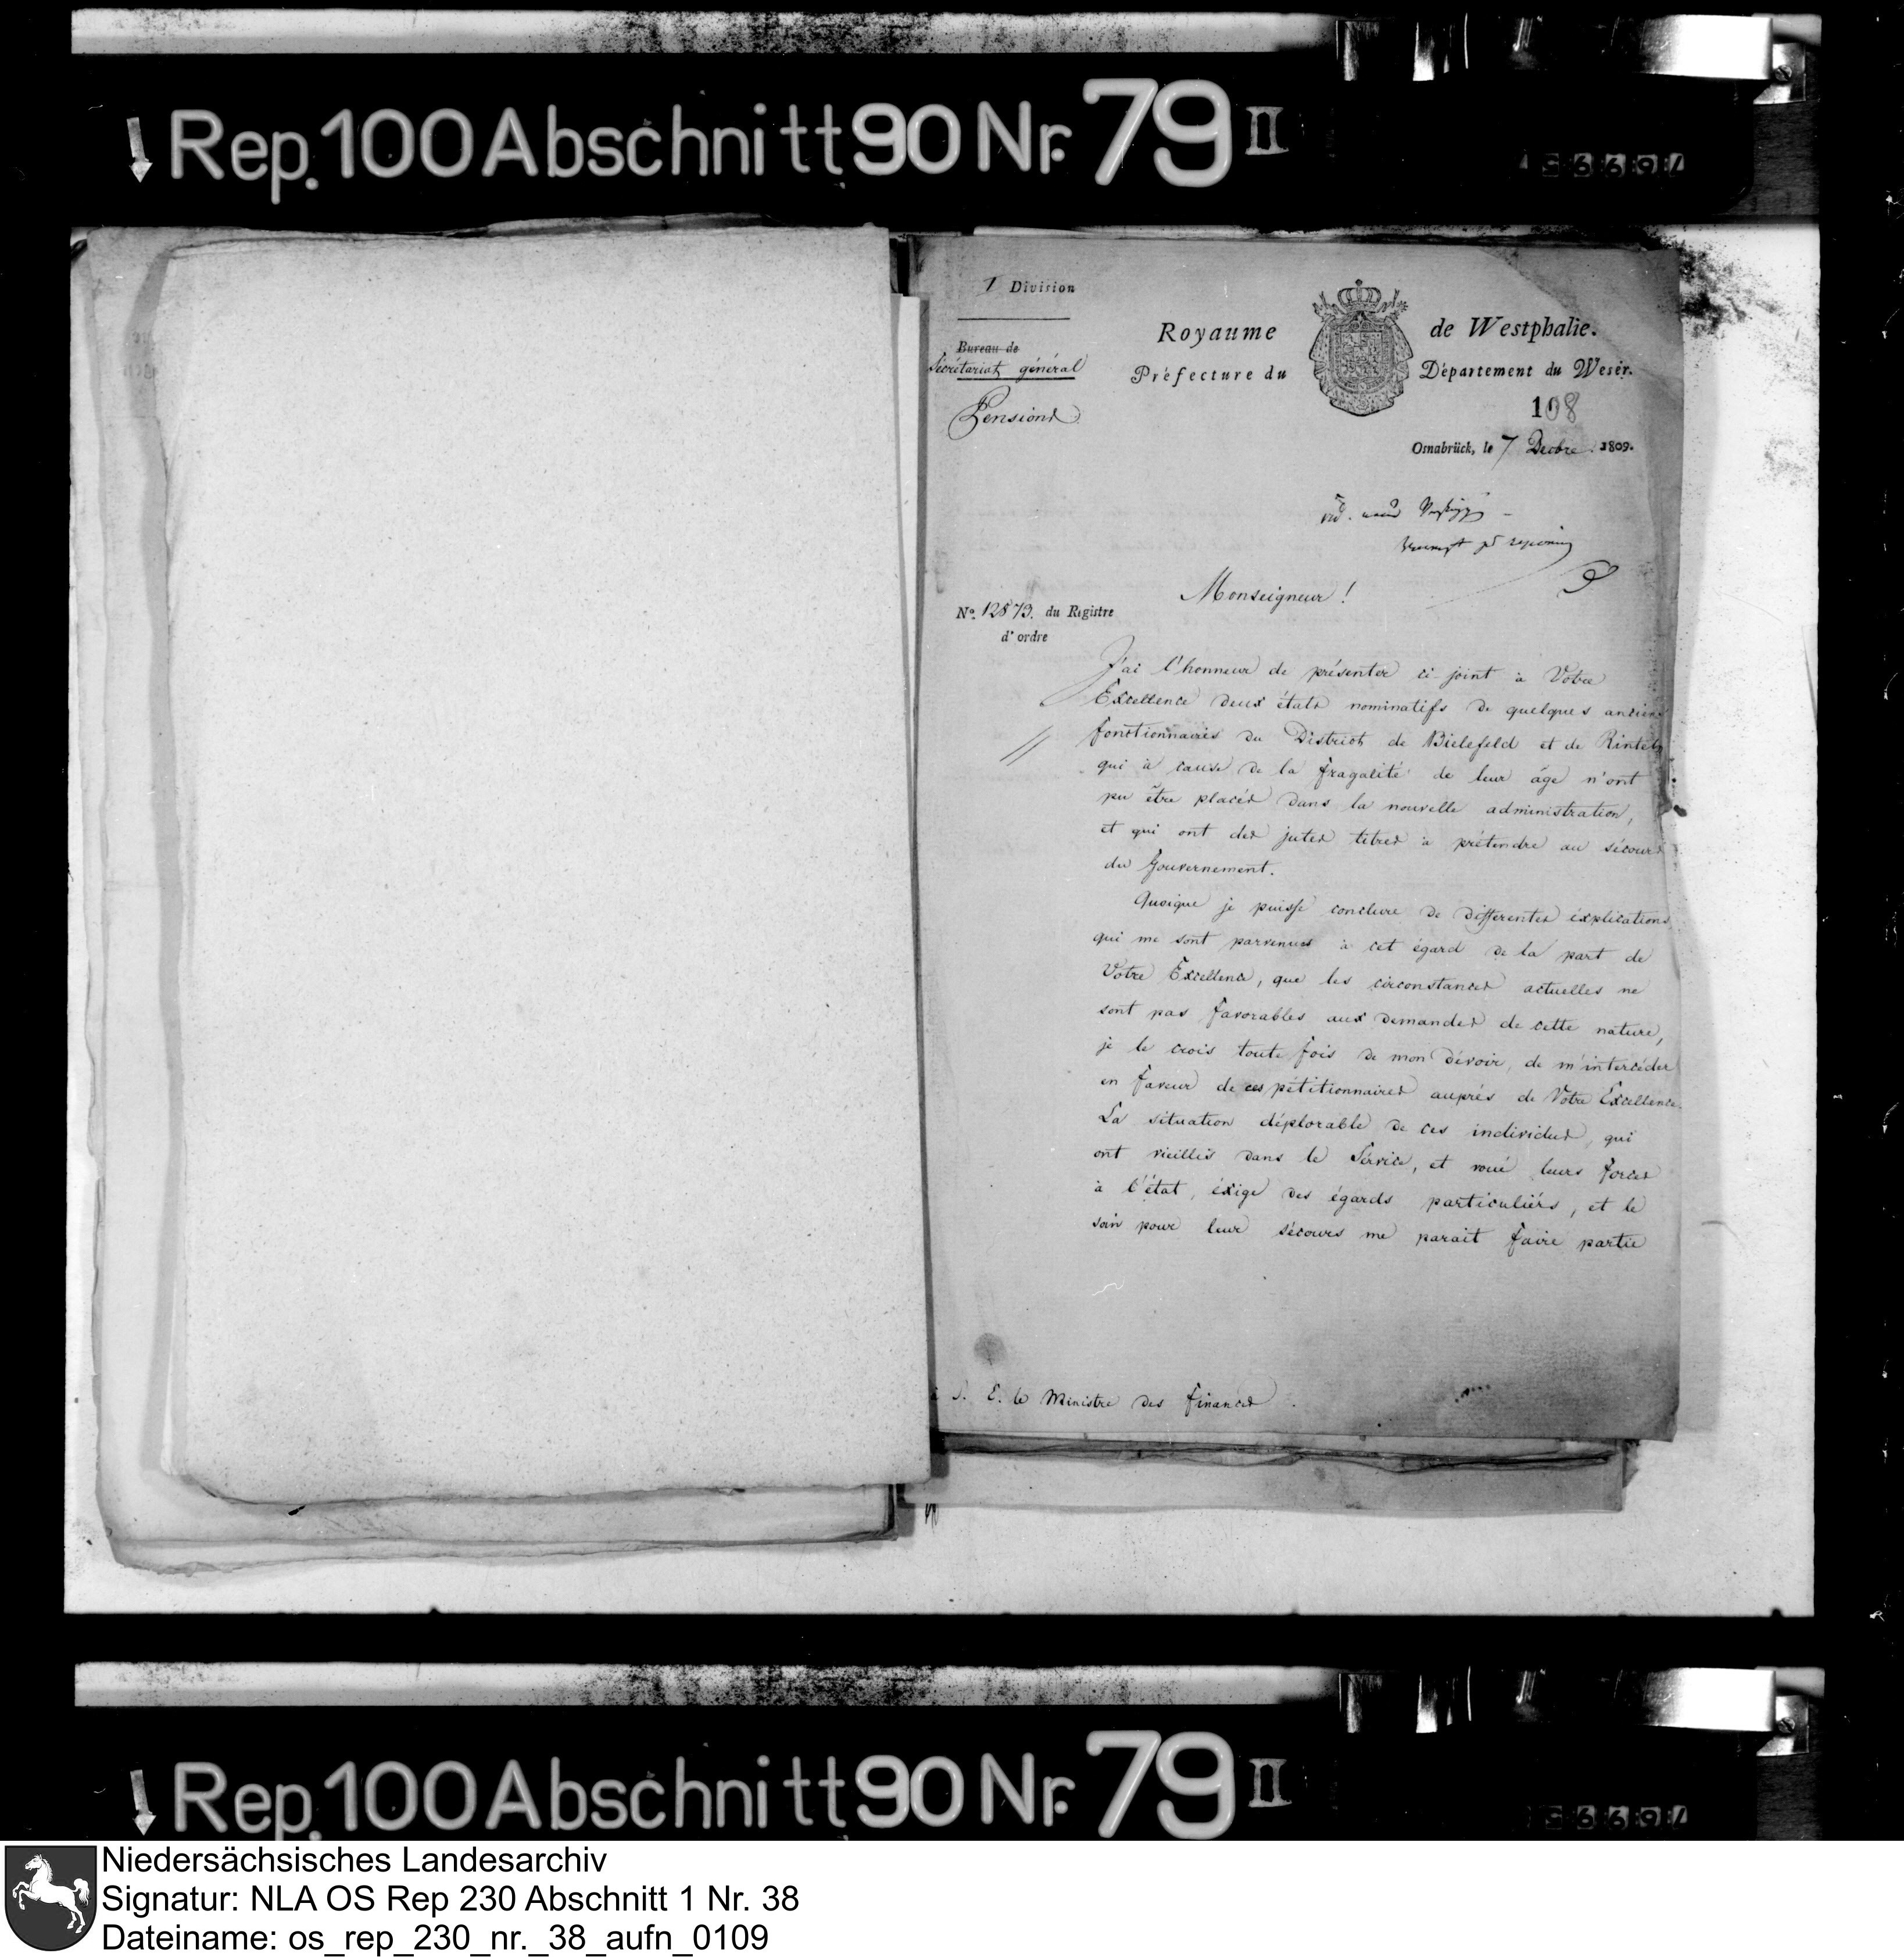 Rep. 100 Abschnitt 90 Nr. 79 II
1 Division
Bureau de
Sécrétariat général
Pensions
Royaume de Westphalie.
Préfecture du Département du Weser.
108
Osnabrück, le 7 Decbre 1809.
Monseigneur !
No. 12873. du Registre
d'ordre
J'ai l'honneur de présenter ci-joint à Votre
Excellence deux états nominatifs de quelques anciens
fonctionnaires du District de Bielefeld et de Rinteln
qui à cause de la fragalité de leur âge n'ont
pu être placés dans la nouvelle administration,
et qui ont des justes titres à prétendre au sécours
du Gouvernement.
Quoique je puisse conclure de differentes éxplications
qui me sont parvenues à cet égard de la part de
Votre Excellence, que les circonstances actuelles ne
sont pas favorables aux demandes de cette nature,
je le crois toute fois de mon dévoir, de m'intercéder
en faveur de ces pétitionnaires auprés de Votre Excellence.
La situation déplorable de ces individus, qui
ont vieillis dans le Sérvice, et voué leurs forces
à l'état, éxige des égards particuliérs, et le
soin pour leur sécours me parait faire partie
à S. E. le Ministre des finances
Rep. 100 Abschnitt 90 Nr. 79 II
Niedersächsisches Landesarchiv
Signatur: NLA OS Rep 230 Abschnitt 1 Nr. 38
Dateiname: os_rep_230_nr._38_aufn_0109